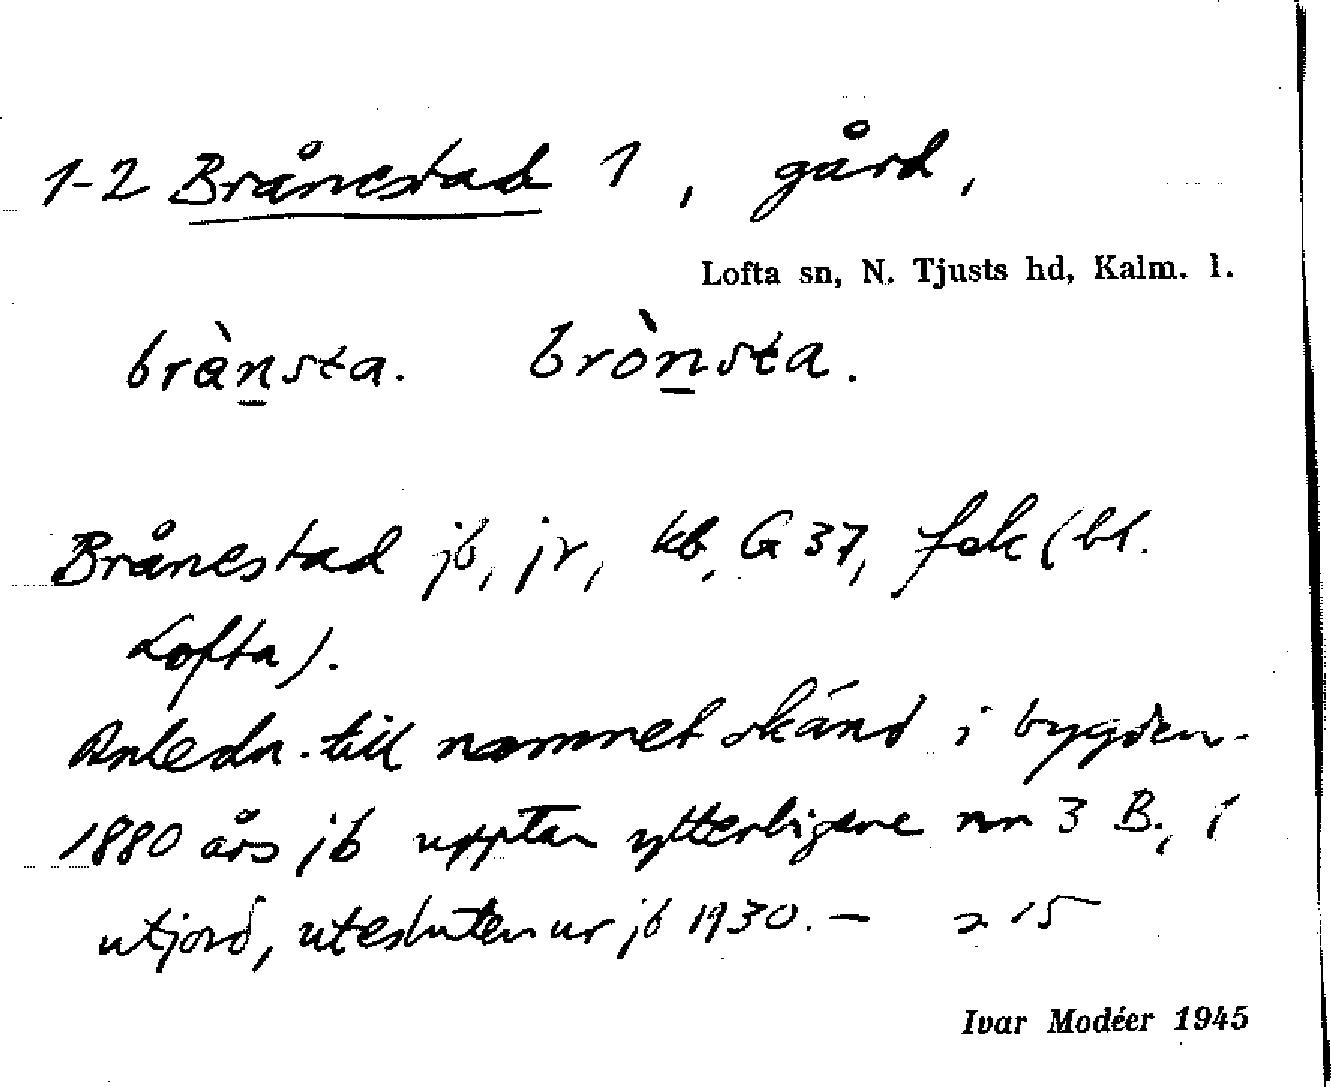 1-2 Brånestad 1, gård,
Lofta sn, N. Tjusts hd, Kalm. l.
brànsta. brònsta.
Brånestad jb, jr, kb, G 37, fek (bl.
Lofta).
Anledn. till namnet okänd i bygden.
1880 års jb upptar ytterligare nr 3 B.,
utjord, utesluten ur jb 1930. — 15
Ivar Modéer 1945